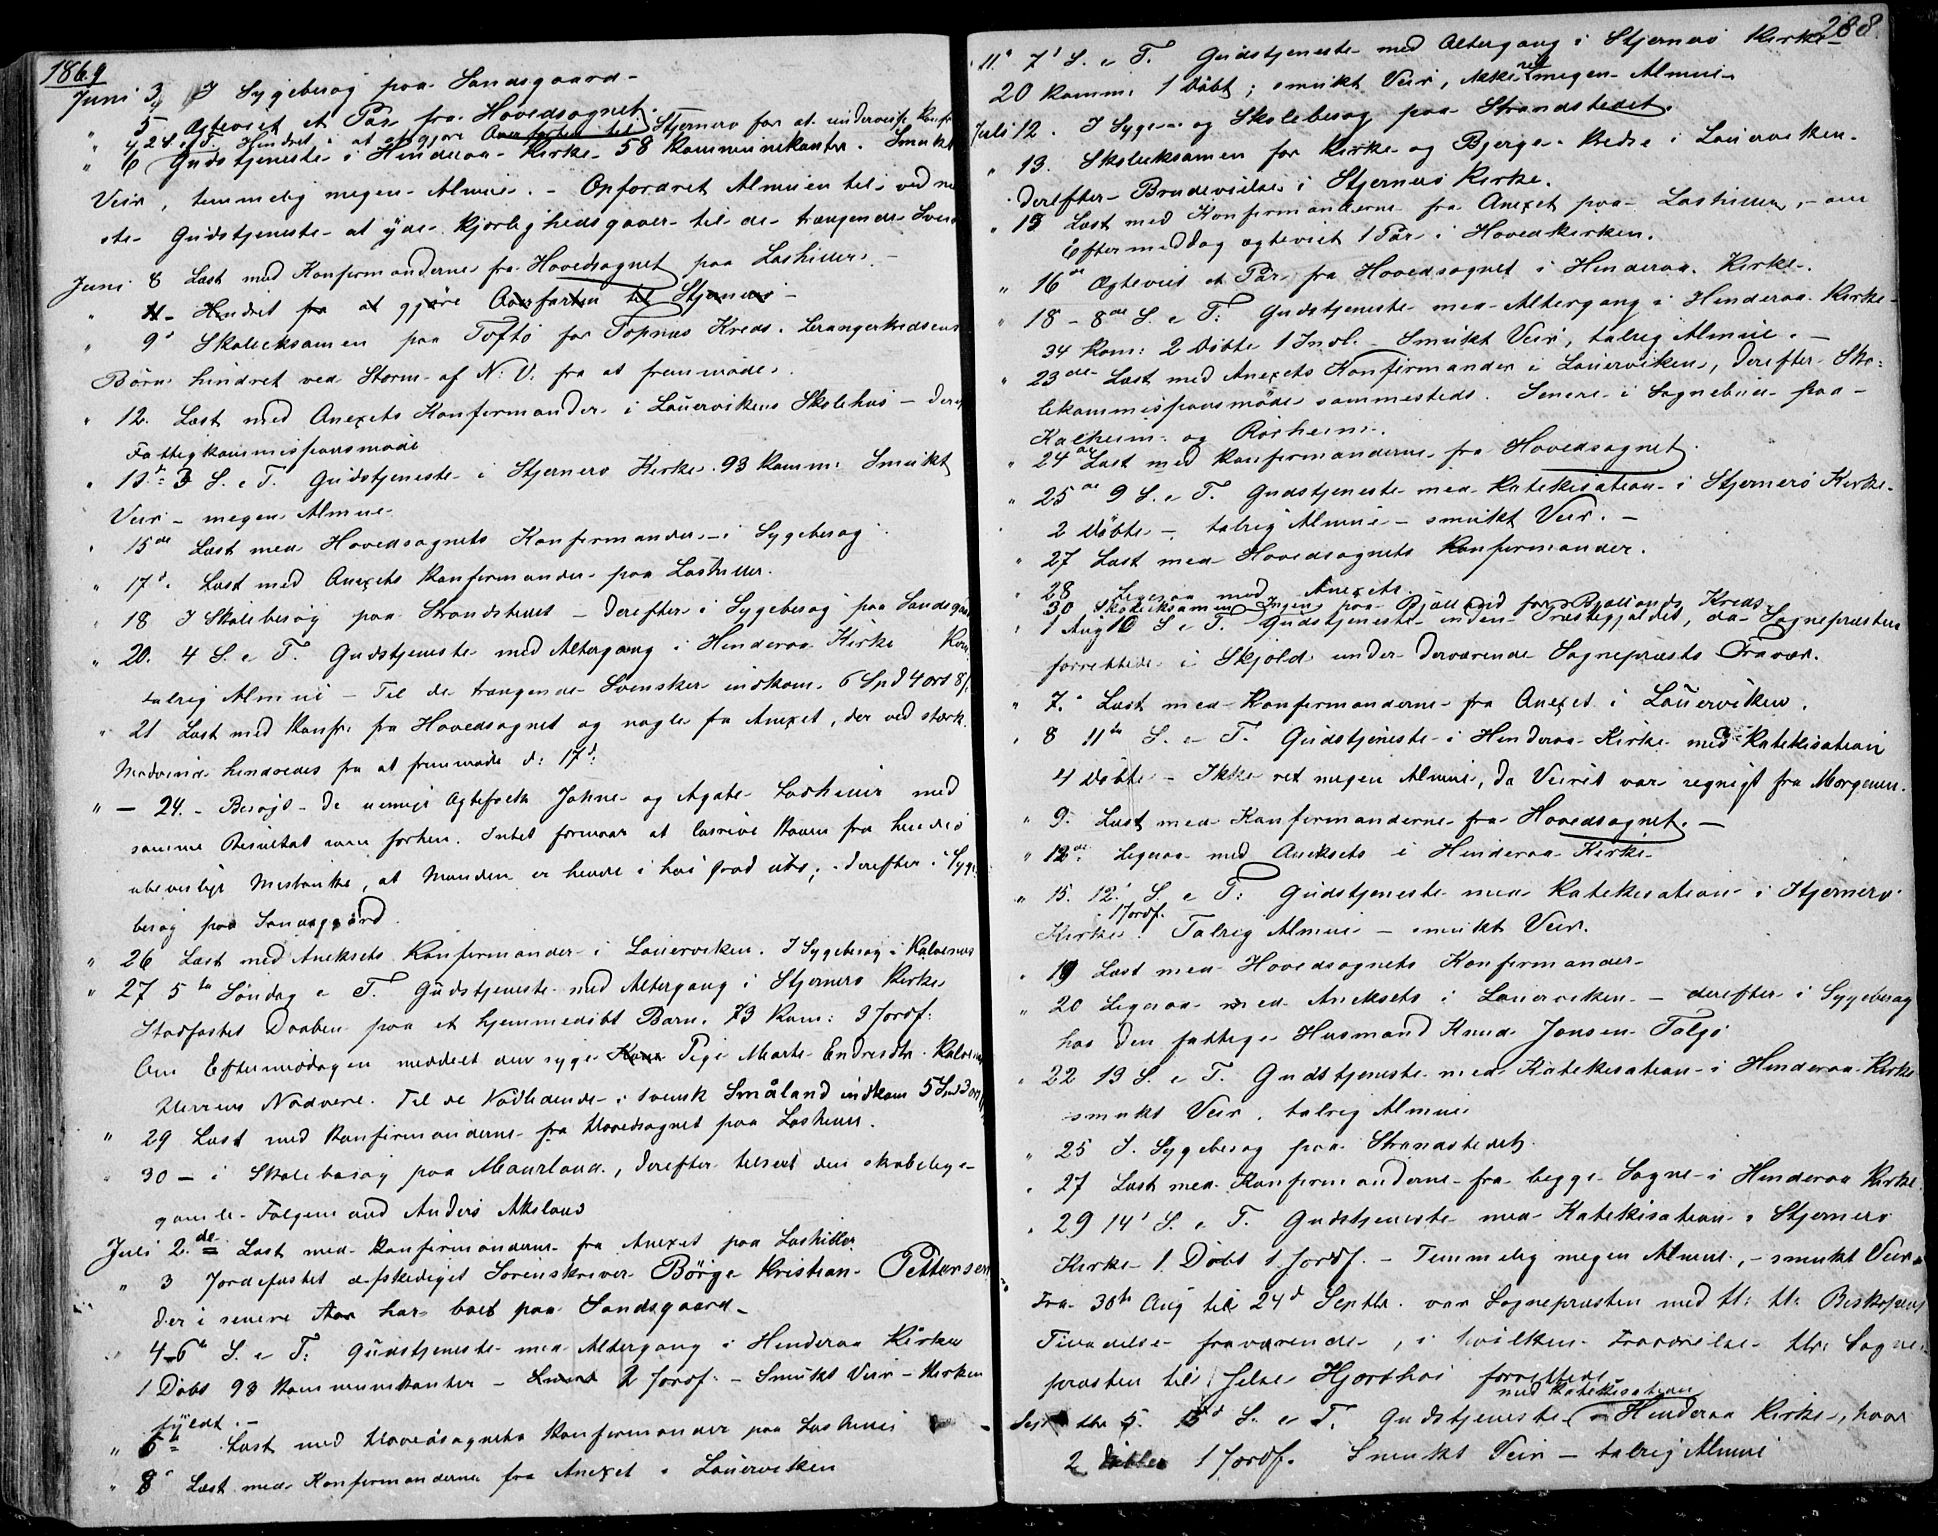 1869
Juni 3 I Sygebesøg paa Sandsgaard –
" 5 Ægteviet et Par fra Hovedsognet.
" 6 2 S. e. T. Hindret i at gjøre Overfarten til Stjernerø for at undervise Konf
Gudstjeneste i Hinderaa Kirke 58 Kommunikanter. Smukt
Veir, temmelig megen Almue. – Opfordret Almuen til ved næ
ste Gudstjeneste at yde Kjærlighedsgaver til de trængende Svens
Juni 8 Læst med Konfirmanderne fra Hovedsognet paa Løshiller. –
" Hindret fra at gjøre Overfarten til Stjernerø –
" 9 Skoleeksamen paa Toftø for Topnæs Kreds. Lerangerkredsens
Børn hindret ved Storm af N. V. fra at fremmøde.
" 12. Læst med Anexets Konfirmander i Lauervikens Skolehus – deref
Fattigkommissionsmøde
" 13 3 S. e. T. Gudstjeneste i Stjernerø Kirke. 93 Komm: Smukt
Veir – megen Almue
" 15de Læst med Hovedsognets Konfirmander – i Sygebesøg
" 17d. Læst med Anexets Konfirmander paa Løshiller.
" 18 I Skolebesøg paa Strandstedet – derefter i Sygebesøg paa Sandsgaa
" 20. 4 S. e. T. Gudstjeneste med Altergang i Hinderaa Kirke Kom
talrig Almue – Til de trængende Svensker indkom 6 Spd 4 ort 8
" 21 Læst med Konfr. fra Hovedsognet og nogle fra Anexet, der ved stærk
Modvind hindredes fra at fremmøde d: 17d:
" – 24. – Besøgt de uenige Ægtefolk Johne og Agate Løshiller med
samme Resultat som forhen. Intet formaar at løsrive Konen fra hendes
ubevislige Mistanke, at Manden er hende i høi Grad utro; – derefter i Syge
besøg paa Sandsgaard.
" 26 Læst med Aneksets Konfirmander i Lauerviken. I Sygebesøg i Kalvenes
" 27 5te Søndag e T. Gudstjeneste med Altergang i Stjernerø Kirke
Stadfæstet Daaben paa et hjemmedøbt Barn. 73 Kom: 3 Jordf:
Om Eftermiddagen meddelt den syge Kone Pige Marte Endresdtr Kalve
Herrens Nadvere. Til de Nødlidende i svensk Småland indkom 5 Spd 3 ort
" 29 Læst med Konfirmanderne fra Hovedsognet paa Løshiller.
" 30 – i Skolebesøg paa Maurland, derefter tilseet den skabelige
gamle Følgemand Anders Aksland
Juli 2de Læst med Konfirmanderne fra Anexet paa Løshiller
" 3 Jordefæstet afskediget Sorenskriver Børge Kristian Pettersen
der i senere Aar har boet paa Sandsgaard –
" 4 – 6te S. e. T: Gudstjeneste med Altergang i Hinderaa Kirke
1 Døbt 98 Kommunikanter – 2 Jordf: – Smukt Veir – Kirken
fyldt. –
" 6te Læst med Hovedsognets Konfirmander paa Løshiller
" 8 Læst med Konfirmanderne fra Anexet i Lauerviken
288.
11 7 S. e T. Gudstjeneste med Altergang i Stjernerø Kirke –
20 Komm: 1 Døbt; smukt Veir, ikke ret megen Almue –
Juli 12. I Syge- og Skolebesøg paa Strandstedet.
" 13. Skoleeksamen for Kirke- og Bjerge Kredse i Lauerviken.
derefter Brudevielse i Stjernerø Kirke.
" 15 Læst med Konfirmanderne fra Anexet paa Løshiller, – om
Eftermiddag ægteviet 1 Par i Hovedkirken.
" 16de Ægteviet et Par fra Hovedsognet i Hinderaa Kirke.
" 18 – 8de S. e T: Gudstjeneste med Altergang i Hinderaa Kirke
34 Kom: 2 Døbte 1 Indl. – Smukt Veir, talrig Almue. –
" 23de Læst med Anexets Konfirmander i Lauerviken, derefter Sko-
lekommissionsmøde sammesteds. Senere i Sognebud paa –
Kalheim og Rørheim.
" 24de Læst med Konfirmanderne fra Hovedsognet.
" 25de 9 S. e T. Gudstjeneste med Katekisation i Stjernerø Kirke.
2 Døbte – talrig Almue – smukt Veir. –
" 27 Læst med Hovedsognets Konfirmander.
" 28 Ligesaa med Anexets.
30 Skoleeksamen paa Bjelland for Bjellands Kreds.
" 1 Aug 10 S. e T. Ingen Gudstjeneste inden Præstegjældet, da Sognepræsten
forrettede i Skjold under derværende Sognepræsts Fravær.
" 7. Læst med Konfirmanderne fra Anexet i Lauerviken.
" 8 11te S. e T. Gudstjeneste i Hinderaa Kirke med Katekisation
4 Døbte – Ikke ret megen Almue, da Veiret var regnigt fra Morgenen.
" 9. Læst med Konfirmanderne fra Hovedsognet. –
" 12de Ligesaa med Aneksets i Hinderaa Kirke.
" 15. 12. S. e T: Gudstjeneste med Katekisation i Stjernerø
Kirke 1 Jordf. Talrig Almue – smukt Veir.
" 19 Læst med Hovedsognets Konfirmander –
" 20 Ligesaa med Aneksets i Lauerviken – derefter i Sygebesøg
hos den fattige Husmand Knud Jonsen Talgø
" 22 13 S. e T. Gudstjeneste med Katekisation i Hinderaa Kirke
smukt Veir, talrig Almue
" 25 I Sygebesøg paa Strandstedet.
" 27 Læst med Konfirmanderne fra begge Sogne i Hinderaa Kirke
" 29 14 S. e T. Gudstjeneste med Katekisation i Stjernerø
Kirke 1 Døbt 1 Jordf. – Temmelig megen Almue, – smukt Veir.
Fra 30te Aug til 24d Septbr. var Sognepræsten med H: Hr: Biskopens
Tilladelse fraværende, i hvilken Fraværelse Hr: Sogne
præsten til Jelse Hjorthøi forrettede
Septbr 5. 15d S. e T. Gudstjeneste med Katekisation i Hinderaa Kirke, hvor
2 Døbtes 1 Jordf. Smukt Veir – talrig Almue